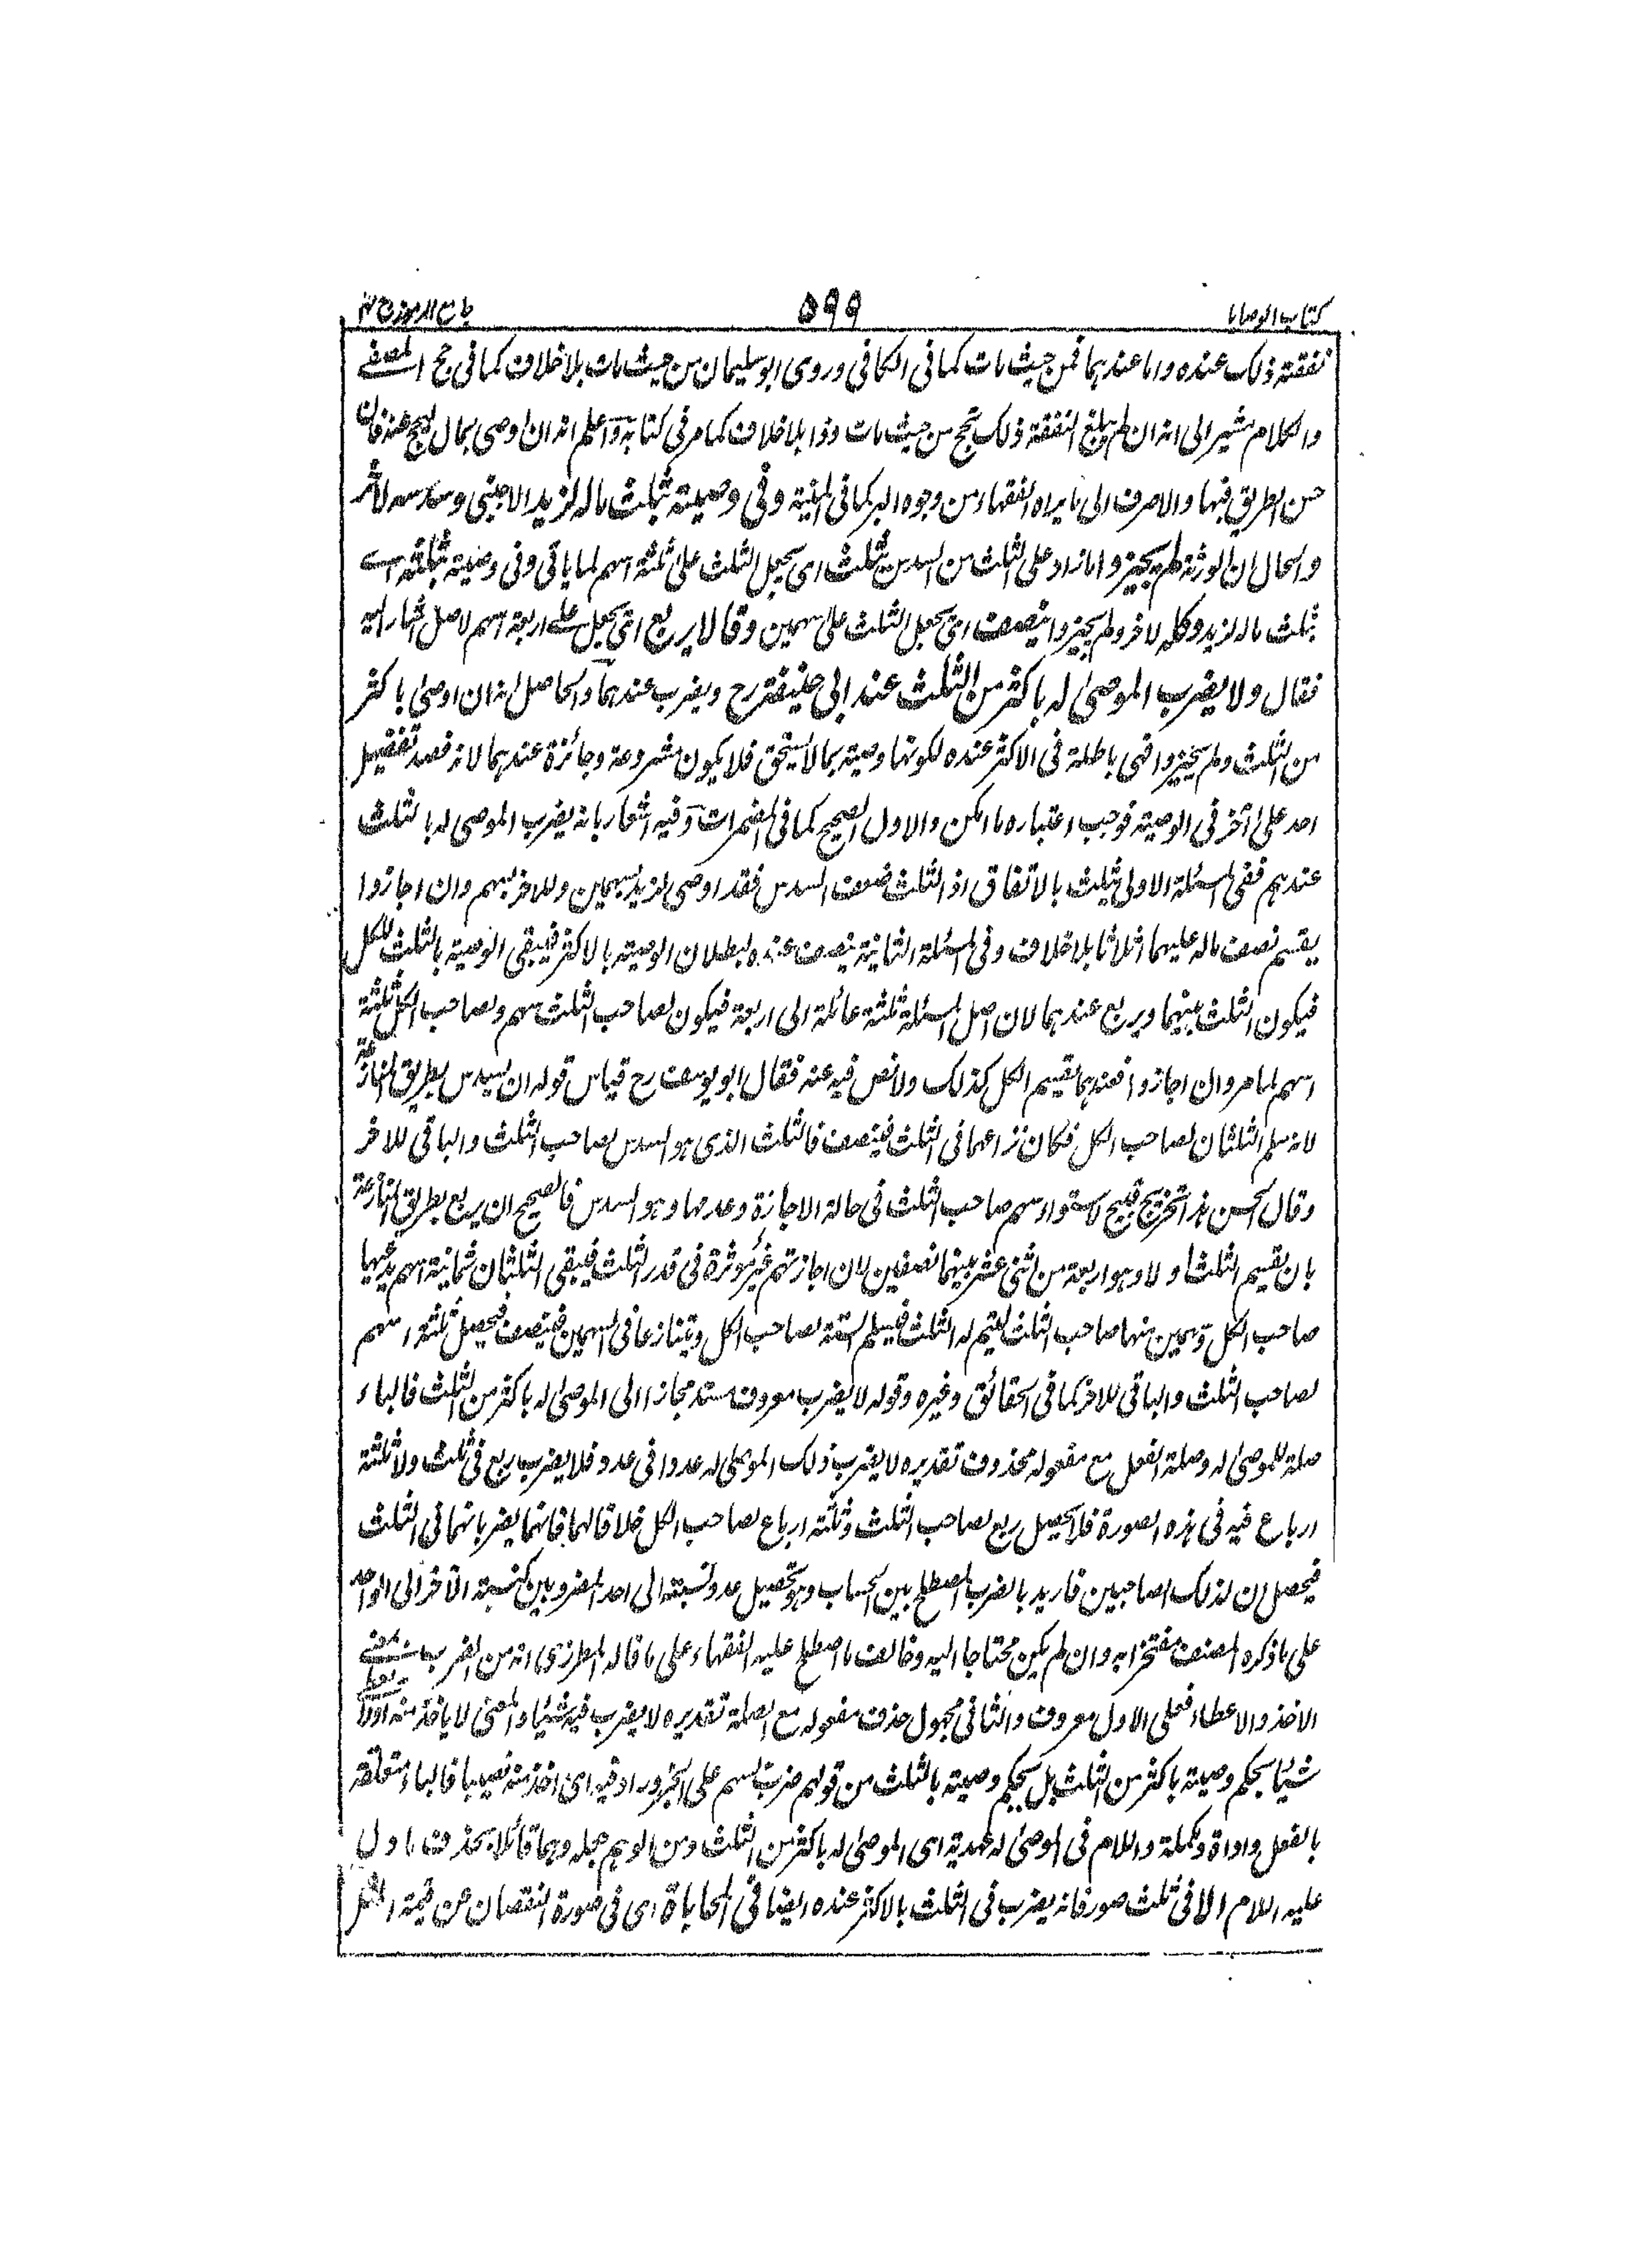 كتاب الوصايا ٥٩٩ جامع الرموز ج ٢
نفقته ذلك عنده واما عندهما فمن حيث مات كما فى الكافى وروى ابو سليمان من حيث مات بلا خلاف كما فى حج المصفے
والكلام مشير الى انه ان لم يبلغ النفقة ذلك تحج من حيث مات وذا بلا خلاف كما مر فى كتابه واعلم انه ان اوصى بمال ليحج عنه فان
حسن الطريق فبها والا صرف الى ما يراه الفقهاء من وجوه البر كما فى المنية وفى وصيته بثلث ماله لزيد الاجنبى وسدسه لآخر
والحال ان الورثة لم يجيزوا ما زاد على الثلث من السدس يثلث اى يجعل الثلث على ثلثة اسهم لما ياتى وفى وصيته بثلثه اے
بثلث ماله لزيد وكله لاخر ولم يجيزوا ينصف اى يجعل الثلث على سهمين وقالا يربع اى يجعل علے اربعة اسهم لاصل اشار اليه
فقال ولا يضرب الموصىٰ له باكثر من الثلث عند ابى حنيفة رح ويضرب عندهما والحاصل انه ان اوصىٰ باكثر
من الثلث ولم يجيزوا فهى باطلة فى الاكثر عنده لكونها وصية بما لا يستحق فلا يكون مشروعة وجائزة عندهما لانه قصد تفضيل
احد على آخر فى الوصية فوجب اعتباره ما امكن والاول الصحيح كما فى المضمرات وفيه اشعار بانه يضرب الموصى له بالثلث
عندهم ففى المسئلة الاولى يثلث بالاتفاق اذ الثلث ضعف السدس فقد اوصى لزيد بسهمين وللاخر بسهم وان اجازوا
يقسم نصف ماله عليهما اثلاثا بلا خلاف وفى المسئلة الثانية ينصف عنده لبطلان الوصية بالاكثر فيبقى الوصية بالثلث للكل
فيكون الثلث بينهما ويربع عندهما لان اصل المسئلة ثلثة عائلة الى اربعة فيكون لصاحب الثلث سهم ولصاحب الكل ثلثة
اسهم لما مر وان اجازوا فعندهما يقسم الكل كذلك ولا نص فيه عنه فقال ابو يوسف رح قياس قوله ان يسدس بطريق المنازعة
لانه سلم الثلثان لصاحب الكل فكان نزاعهما فى الثلث فينصف فالثلث الذى هو السدس لصاحب الثلث والباقى للاخر
وقال الحسن هذا تخريج قبيح لاستواء سهم صاحب الثلث فى حالة الاجازة وعدمها وهو السدس فالصحيح ان يربع بطريق المنازعة
بان تقسيم الثلث اولا وهو اربعة من اثنى عشر بينهما نصفين لان اجازتهم غير مؤثرة فى قدر الثلث فيبقى الثلثان ثمانية اسهم يدعيها
صاحب الكل وسهمين منها صاحب الثلث ليتم له الثلث فيسلم الستة لصاحب الكل وتنازعا فى السهمين فينصف فيحصل ثلثة اسهم
لصاحب الثلث والباقى للاخر كما فى الحقائق وغيره وقوله لا يضرب معروف مسند مجازا الى الموصىٰ له باكثر من الثلث فالباء
صلة للموصىٰ له وصلة الفعل مع مفعوله محذوف تقديره لا يضرب ذلك الموصىٰ له عددا فى عدد فلا يضرب ربع فى ثلث ولا ثلثة
ارباع فيه فى هذه الصورة فلا يحصل ربع لصاحب الثلث وثلثة ارباع لصاحب الكل خلافا لهما فانهما يضربانهما فى الثلث
فيحصل ان لذلك الصاحبين فاريد بالضرب المصطلح بين الحساب وهو تحصيل عدد نسبته الى احد المضروبين كنسبة الآخر الى الواحد
على ما ذكره المصنف مفتخرا به وان لم يكن محتاجا اليه وخالف ما اصطلح عليه الفقهاء على ما قاله المطرزى انه من الضرب بمعنے
الاخذ والاعطاء فعلى الاول معروف والثانى مجهول حذف مفعوله مع الصلة تقديره لا يضرب فيه شيئا والمعنى لا ياخذ منه او لا يعطے
شيئا بحكم وصية باكثر من الثلث بل بحكم وصية بالثلث من قولهم ضرب بسهم على الجزور اى اخذ منه نصيبا فالباء متعلقة
بالفعل واداة وكملة واللام فى الموصىٰ له عهدية اى الموصىٰ له باكثر من الثلث ومن الوهم جعله وهما قائلا بحذف ما دل
عليه اللام الا فى ثلث صور فانه يضرب فى الثلث بالاكثر عنده ايضا فى المحاباة اى فى صورة النقصان عن قيمة المثل